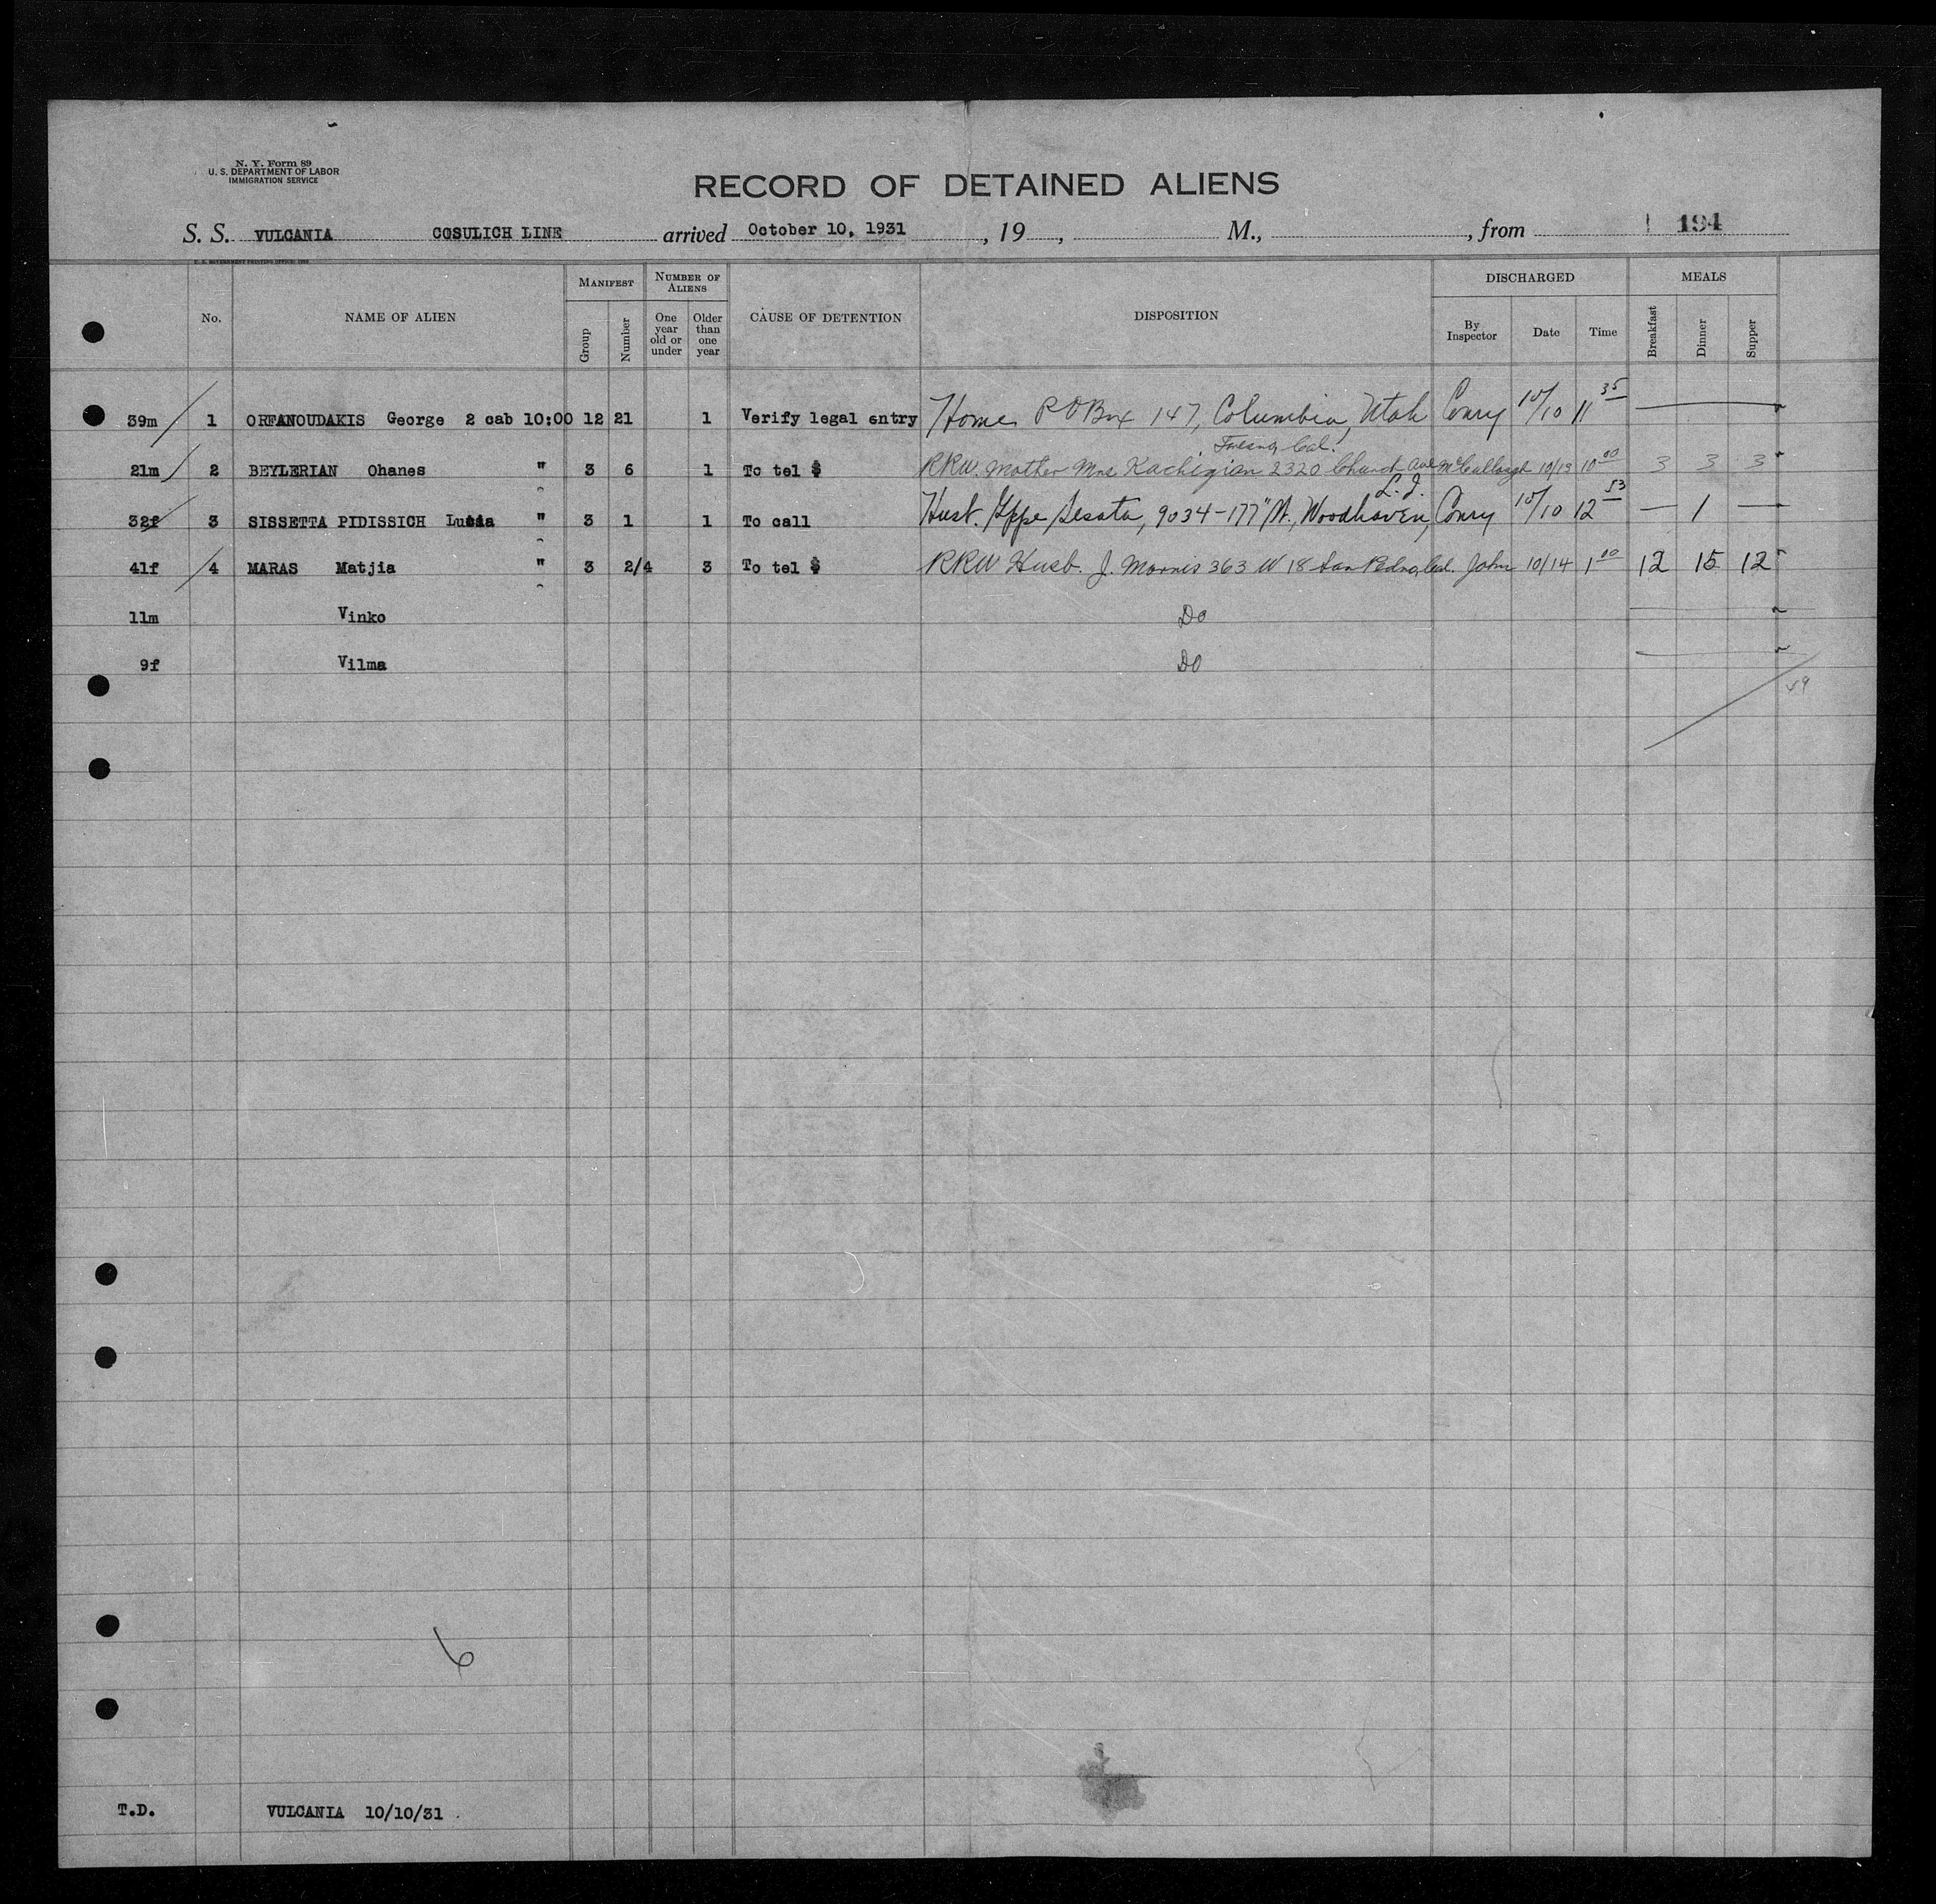 N. Y. Form 89
U. S. DEPARTMENT OF LABOR
IMMIGRATION SERVICE
RECORD OF DETAINED ALIENS
S. S. VULCANIA COSULICH LINE arrived October 10, 1931, 19, M., from 194
No. NAME OF ALIEN MANIFEST Group Number NUMBER OF ALIENS One year old or under Older than one year CAUSE OF DETENTION DISPOSITION DISCHARGED By Inspector Date Time MEALS Breakfast Dinner Supper
39m 1 ORFANOUDAKIS George 2 cab 10:00 12 21 1 Verify legal entry Home P O Box 147, Columbia, Utah Conry 10/10 11 35
Fresno, Cal.
21m 2 BEYLERIAN Ohanes " 3 6 1 To tel $ RRW. Mother Mrs Kachigian 2320 Church Ave McCullough 10/13 10 00 3 3 3
L. I.
32f 3 SISSETTA PIDISSICH Lucia " 3 1 1 To call Husb. 9034-177" St., Woodhaven, Conry 10/10 12 53 — 1 —
41f 4 MARAS Matjia " 3 2/4 3 To tel $ RRW Husb. J. Morris 363 W 18 San Pedro, Cal. John 10/14 1 00 12 15 12
11m Vinko Do
9f Vilma Do
49
6
T.D. VULCANIA 10/10/31